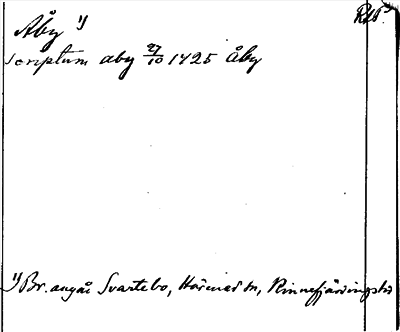 RAP.
Åby 1)
Scriptum aby 27/10 1425 Åby
1) Br. angår Svartebo, Härned sn, Rinnefjärdingshd